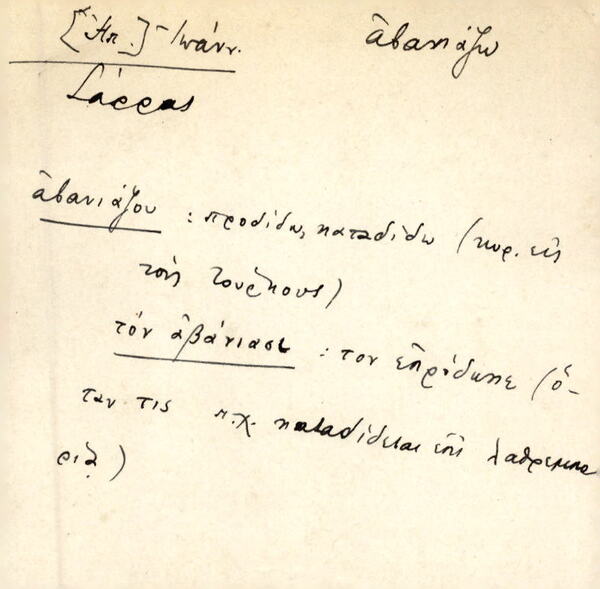 [Ἠπ.] - Ἰωάνν. ἀβανιάζω
Σάρρας
ἀβανιάζου : προδίδω, καταδίδω (κυρ. εἰς
τούς Τούρκους)
τόν ἀβάνιασι : τον επρόδωκε (ὅ-
ταν τις π.χ. καταδίδεται ἐπί λαθρεμπο
ρίᾳ)